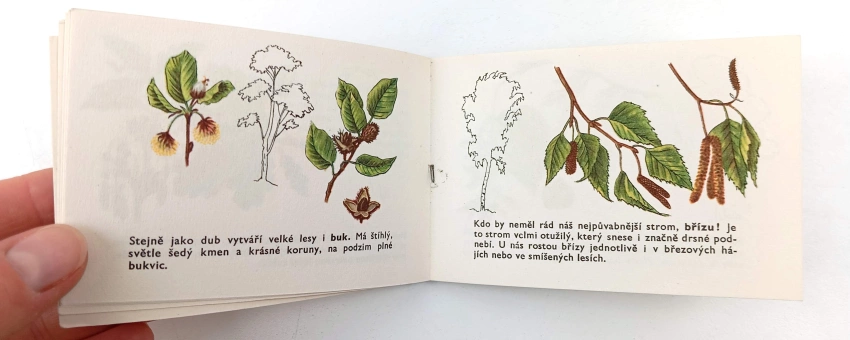 Stejně jako dub vytváří velké lesy i buk. Má štíhlý,
světle šedý kmen a krásné koruny, na podzim plné
bukvic.
Kdo by neměl rád náš nejpůvabnější strom, břízu! Je
to strom velmi otužilý, který snese i značně drsné pod-
nebí. U nás rostou břízy jednotlivě i v březových há-
jích nebo ve smíšených lesích.